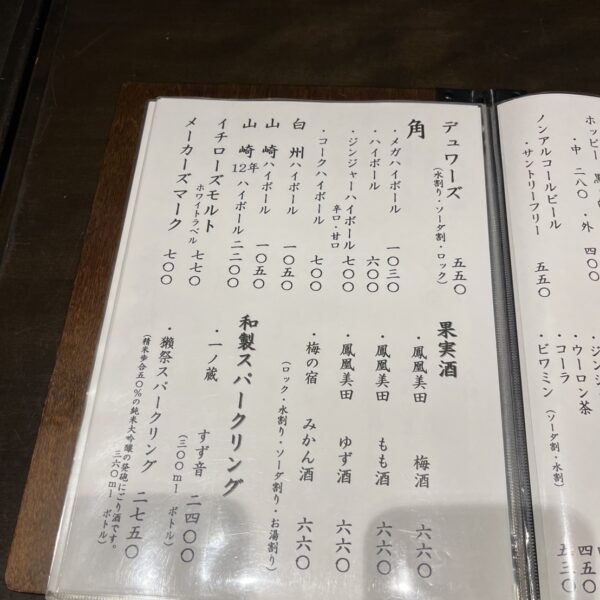 ホッピー
・中 二八〇 ・外 四〇〇
ノンアルコールビール
・サントリーフリー 五五〇
ウーロン茶
・コーラ
・ビワミン
(ソーダ割・水割)
デュワーズ 五五〇
(水割り・ソーダ割・ロック)
角
・メガハイボール 一〇三〇
・ハイボール 六〇〇
・ジンジャーハイボール 七〇〇
辛口・甘口
・コークハイボール 七〇〇
白州ハイボール 一〇五〇
山崎ハイボール 一〇五〇
山崎12年ハイボール 二二〇〇
イチローズモルト 七七〇
ホワイトラベル
メーカーズマーク 七〇〇
果実酒
・鳳凰美田 梅酒 六六〇
・鳳凰美田 もも酒 六六〇
・鳳凰美田 ゆず酒 六六〇
・梅の宿 みかん酒 六六〇
(ロック・水割り・ソーダ割り・お湯割り)
和製スパークリング
・一ノ蔵 すず音 二四〇〇
(三〇〇ml ボトル)
・獺祭スパークリング 二七五〇
(精米歩合五〇%の純米大吟醸の発砲にごり酒です。
三六〇ml ボトル)